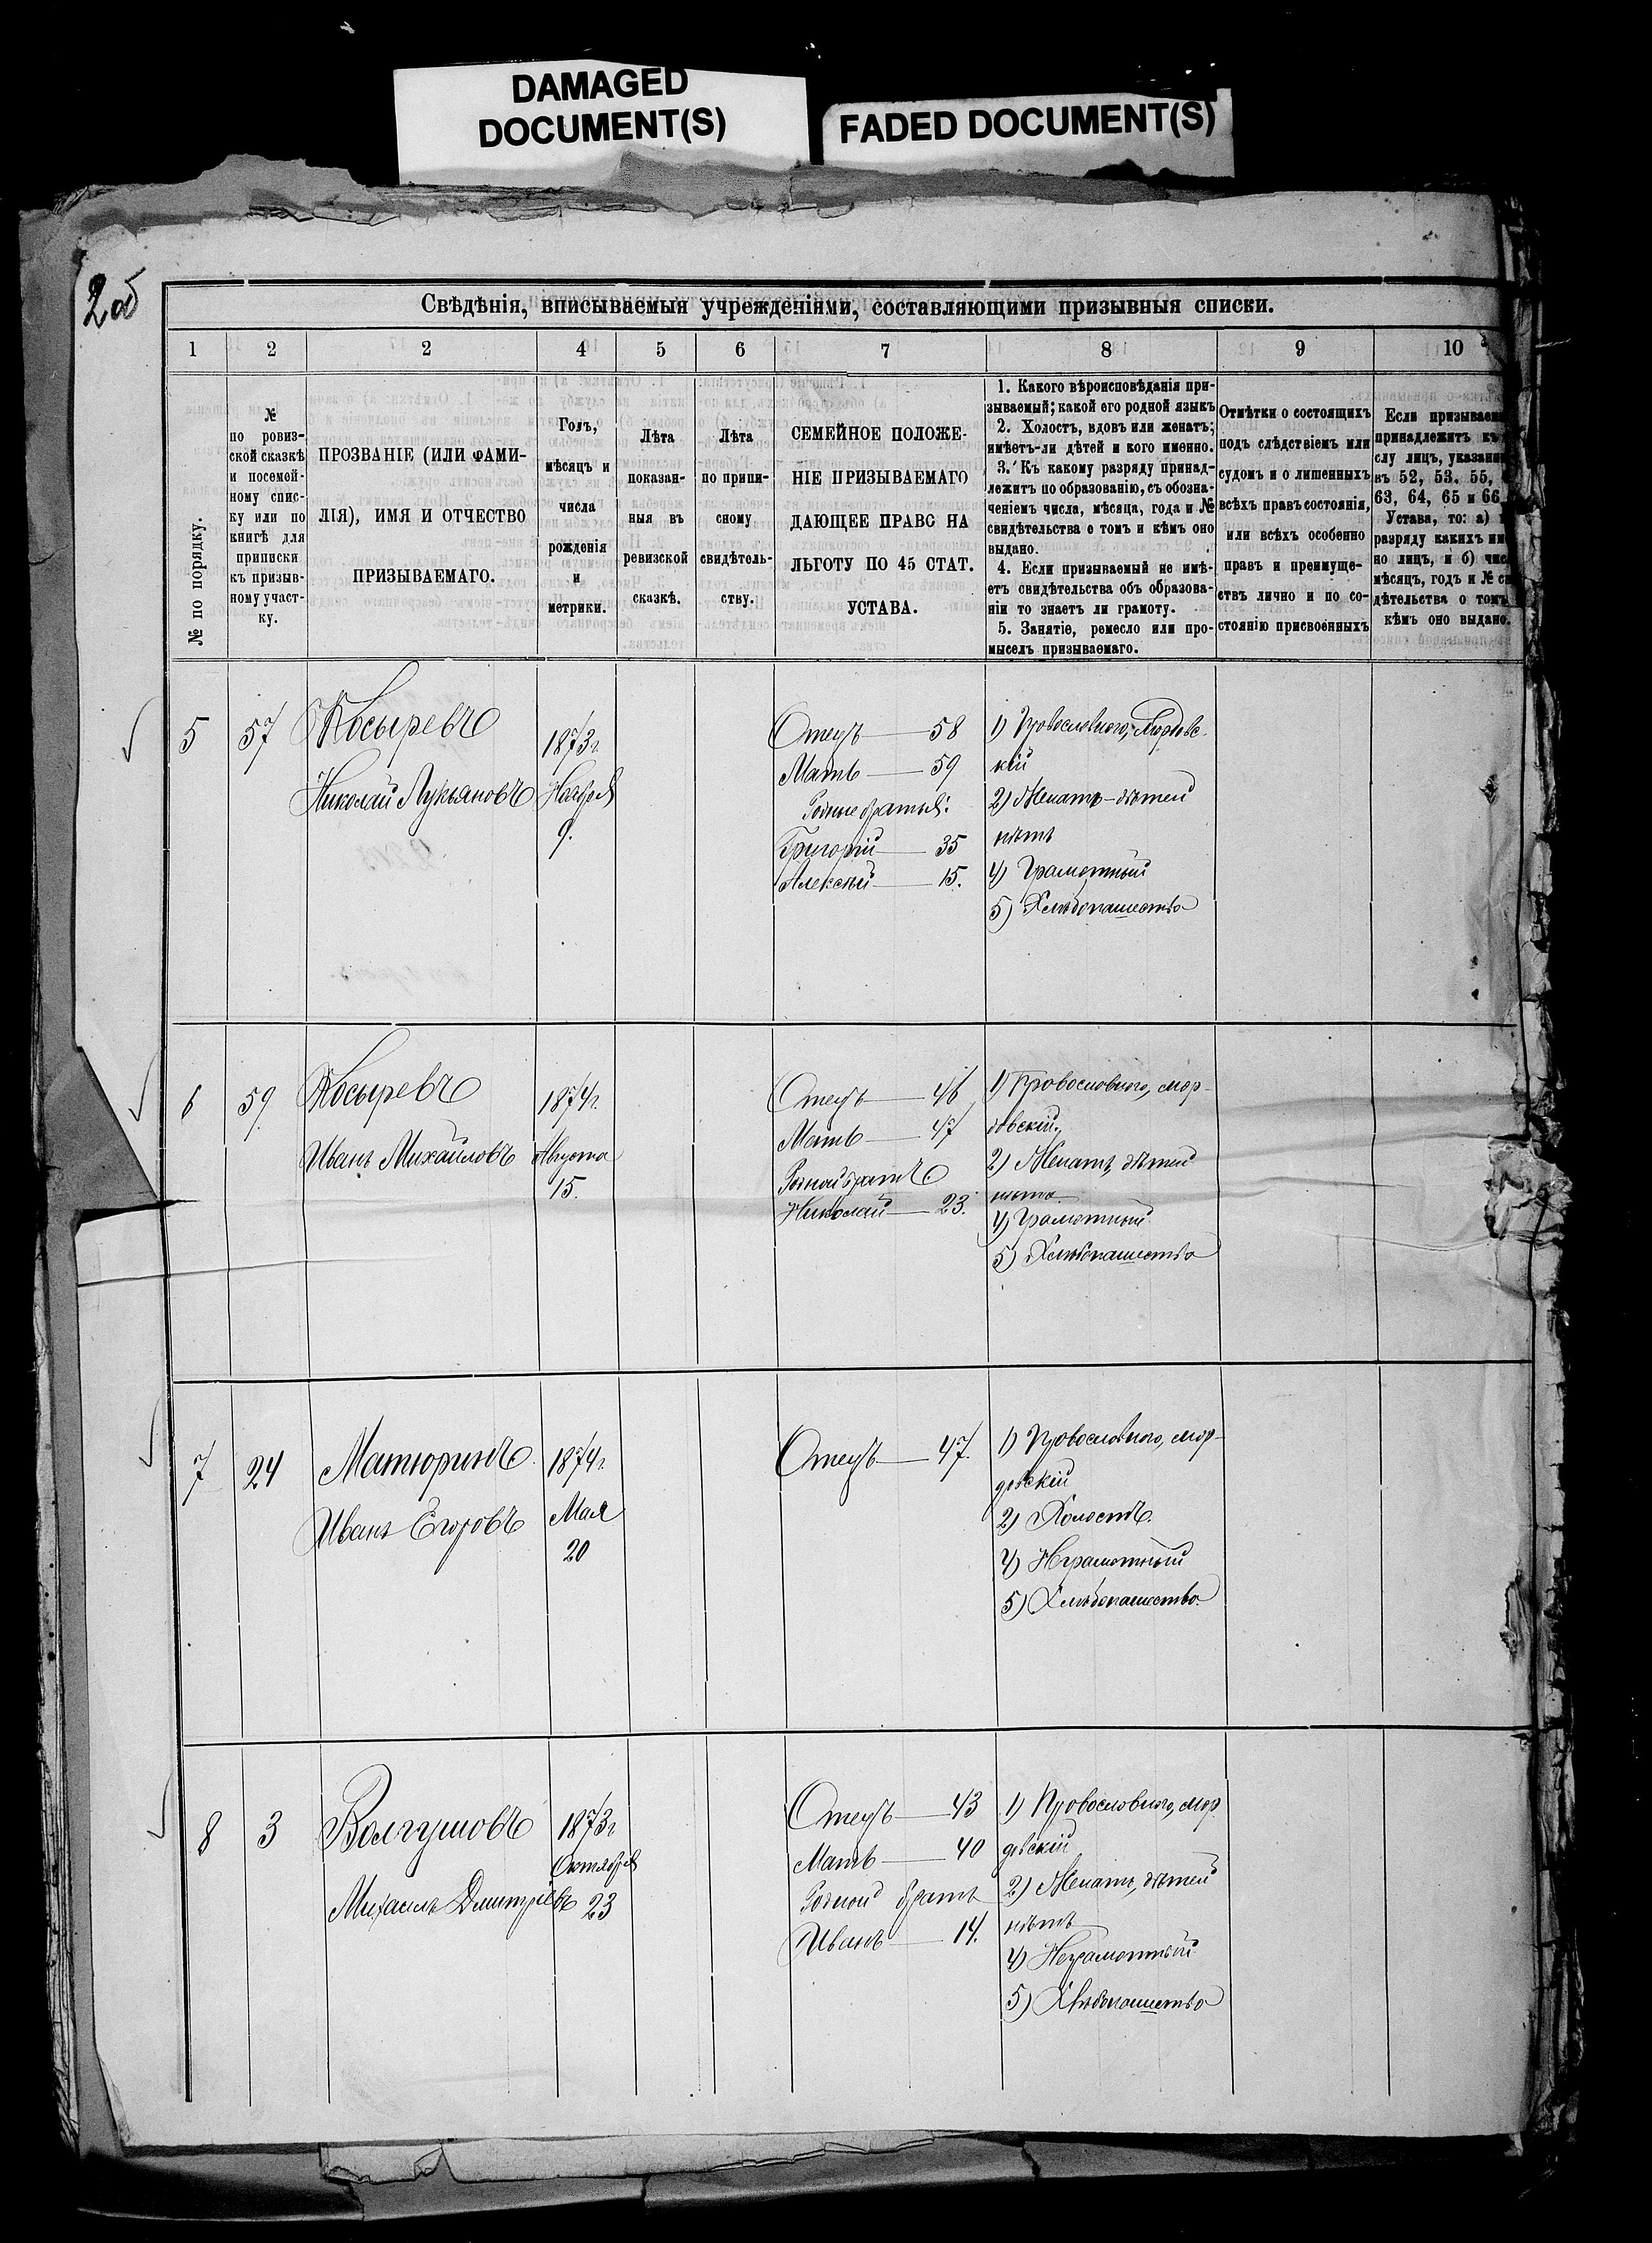 DAMAGED
DOCUMENT(S)
FADED DOCUMENT(S)
2 об
Свѣдѣнія, вписываемыя учрежденіями, составляющими призывныя списки.
1 2 2 4 5 6 7 8 9 10
№ по порядку.
№
по ровиз-
ской сказкѣ
и посемей-
ному спис-
ку или по
книгѣ для
приписки
къ призыв-
ному участ-
ку.
ПРОЗВАНІЕ (ИЛИ ФАМИ-
ЛІЯ), ИМЯ И ОТЧЕСТВО
ПРИЗЫВАЕМАГО.
Годъ,
мѣсяцъ и
числа
рожденія
и
метрики.
Лѣта
показан-
ныя въ
ревизской
сказкѣ.
Лѣта
по припи-
сному
свидѣтель-
ству.
СЕМЕЙНОЕ ПОЛОЖЕ-
НІЕ ПРИЗЫВАЕМАГО
ДАЮЩЕЕ ПРАВО НА
ЛЬГОТУ ПО 45 СТАТ.
УСТАВА.
1. Какого вѣроисповѣданія при-
зываемый; какой его родной языкъ
2. Холостъ, вдовъ или женатъ;
имѣетъ-ли дѣтей и кого именно.
3. Къ какому разряду принад-
лежитъ по образованію, съ обозна-
ченіемъ числа, мѣсяца, года и №
свидѣтельства о томъ и кѣмъ оно
выдано.
4. Если призываемый не имѣ-
етъ свидѣтельства объ образова-
ніи то знаетъ ли грамоту.
5. Занятіе, ремесло или про-
мыселъ призываемаго.
Отмѣтки о состоящихъ
подъ слѣдствіемъ или
судомъ и о лишенныхъ
всѣхъ правъ состоянія,
или всѣхъ особенно
правъ и преимуще-
ствъ лично и по со-
стоянію присвоенныхъ
Если призываем
принадлежитъ къ
слу лицъ, указанн
въ 52, 53, 55,
63, 64, 65 и 66
Устава, то: а)
разряду какихъ им
но лицъ, и б) чис
мѣсяцъ, годъ и № св
дѣтельства о томъ
кѣмъ оно выдано.
5 57 Косыревъ
Николай Лукьяновъ
1873 г.
Ноября
9.
Отецъ — 58
Мать — 59
Родные братья:
Григорій — 35
Алексѣй — 15.
1) Православнаго, Мордовс-
кій
2) Женатъ - дѣтей
нѣтъ
4) Грамотный
5) Хлѣбопашество
6 59 Косыревъ
Иванъ Михайловъ
1874 г.
Августа
15.
Отецъ — 46
Мать — 47
Родной братъ
Николай — 23.
1) Православнаго, мор-
довскій,
2) Женатъ, дѣтей
нѣтъ
4) Грамотный
5) Хлѣбопашество
7 24 Матюринъ
Иванъ Егоровъ
1874 г.
Мая
20
Отецъ — 47.
1) Православнаго, мор-
довскій
2) Холостъ.
4) Нграмотный
5) Хлѣбопашество
8 3 Волгушовъ
Михаилъ Дмитріевъ
1873 г
Октября
23
Отецъ — 43
Мать — 40
Родной братъ
Иванъ — 14.
1) Православнаго, мор
довскій
2) Женатъ, дѣтей
нѣтъ
4) Неграмотный
5) Хлѣбопашество